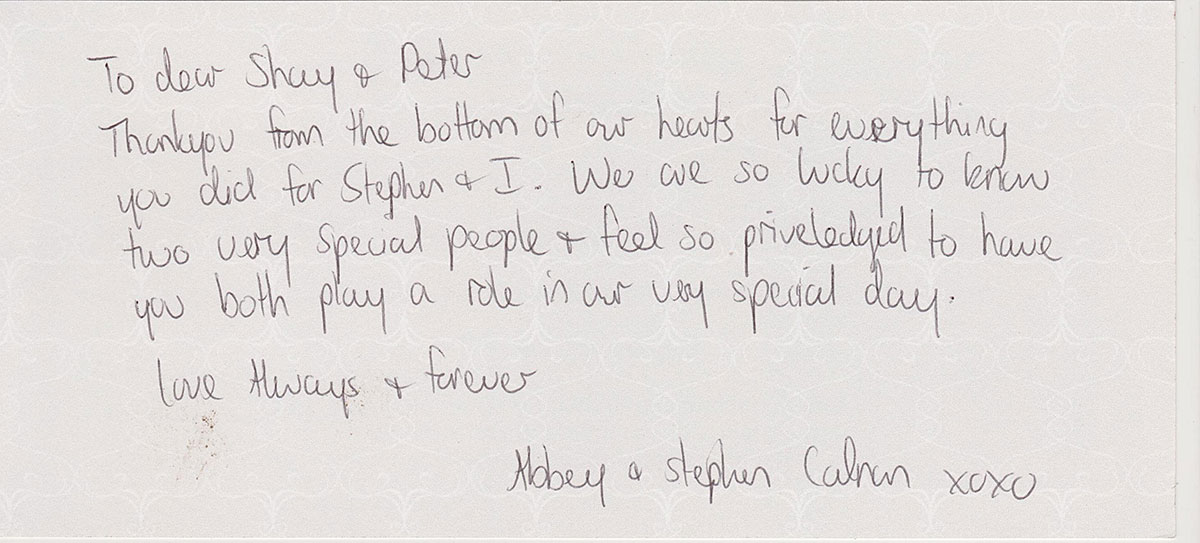 To dear Shay & Peter
Thankyou from the bottom of our hearts for everything
you did for Stephen & I. We are so lucky to know
two very special people & feel so priveledged to have
you both play a role in our very special day.
Love Always & forever
Abbey & Stephen xoxo